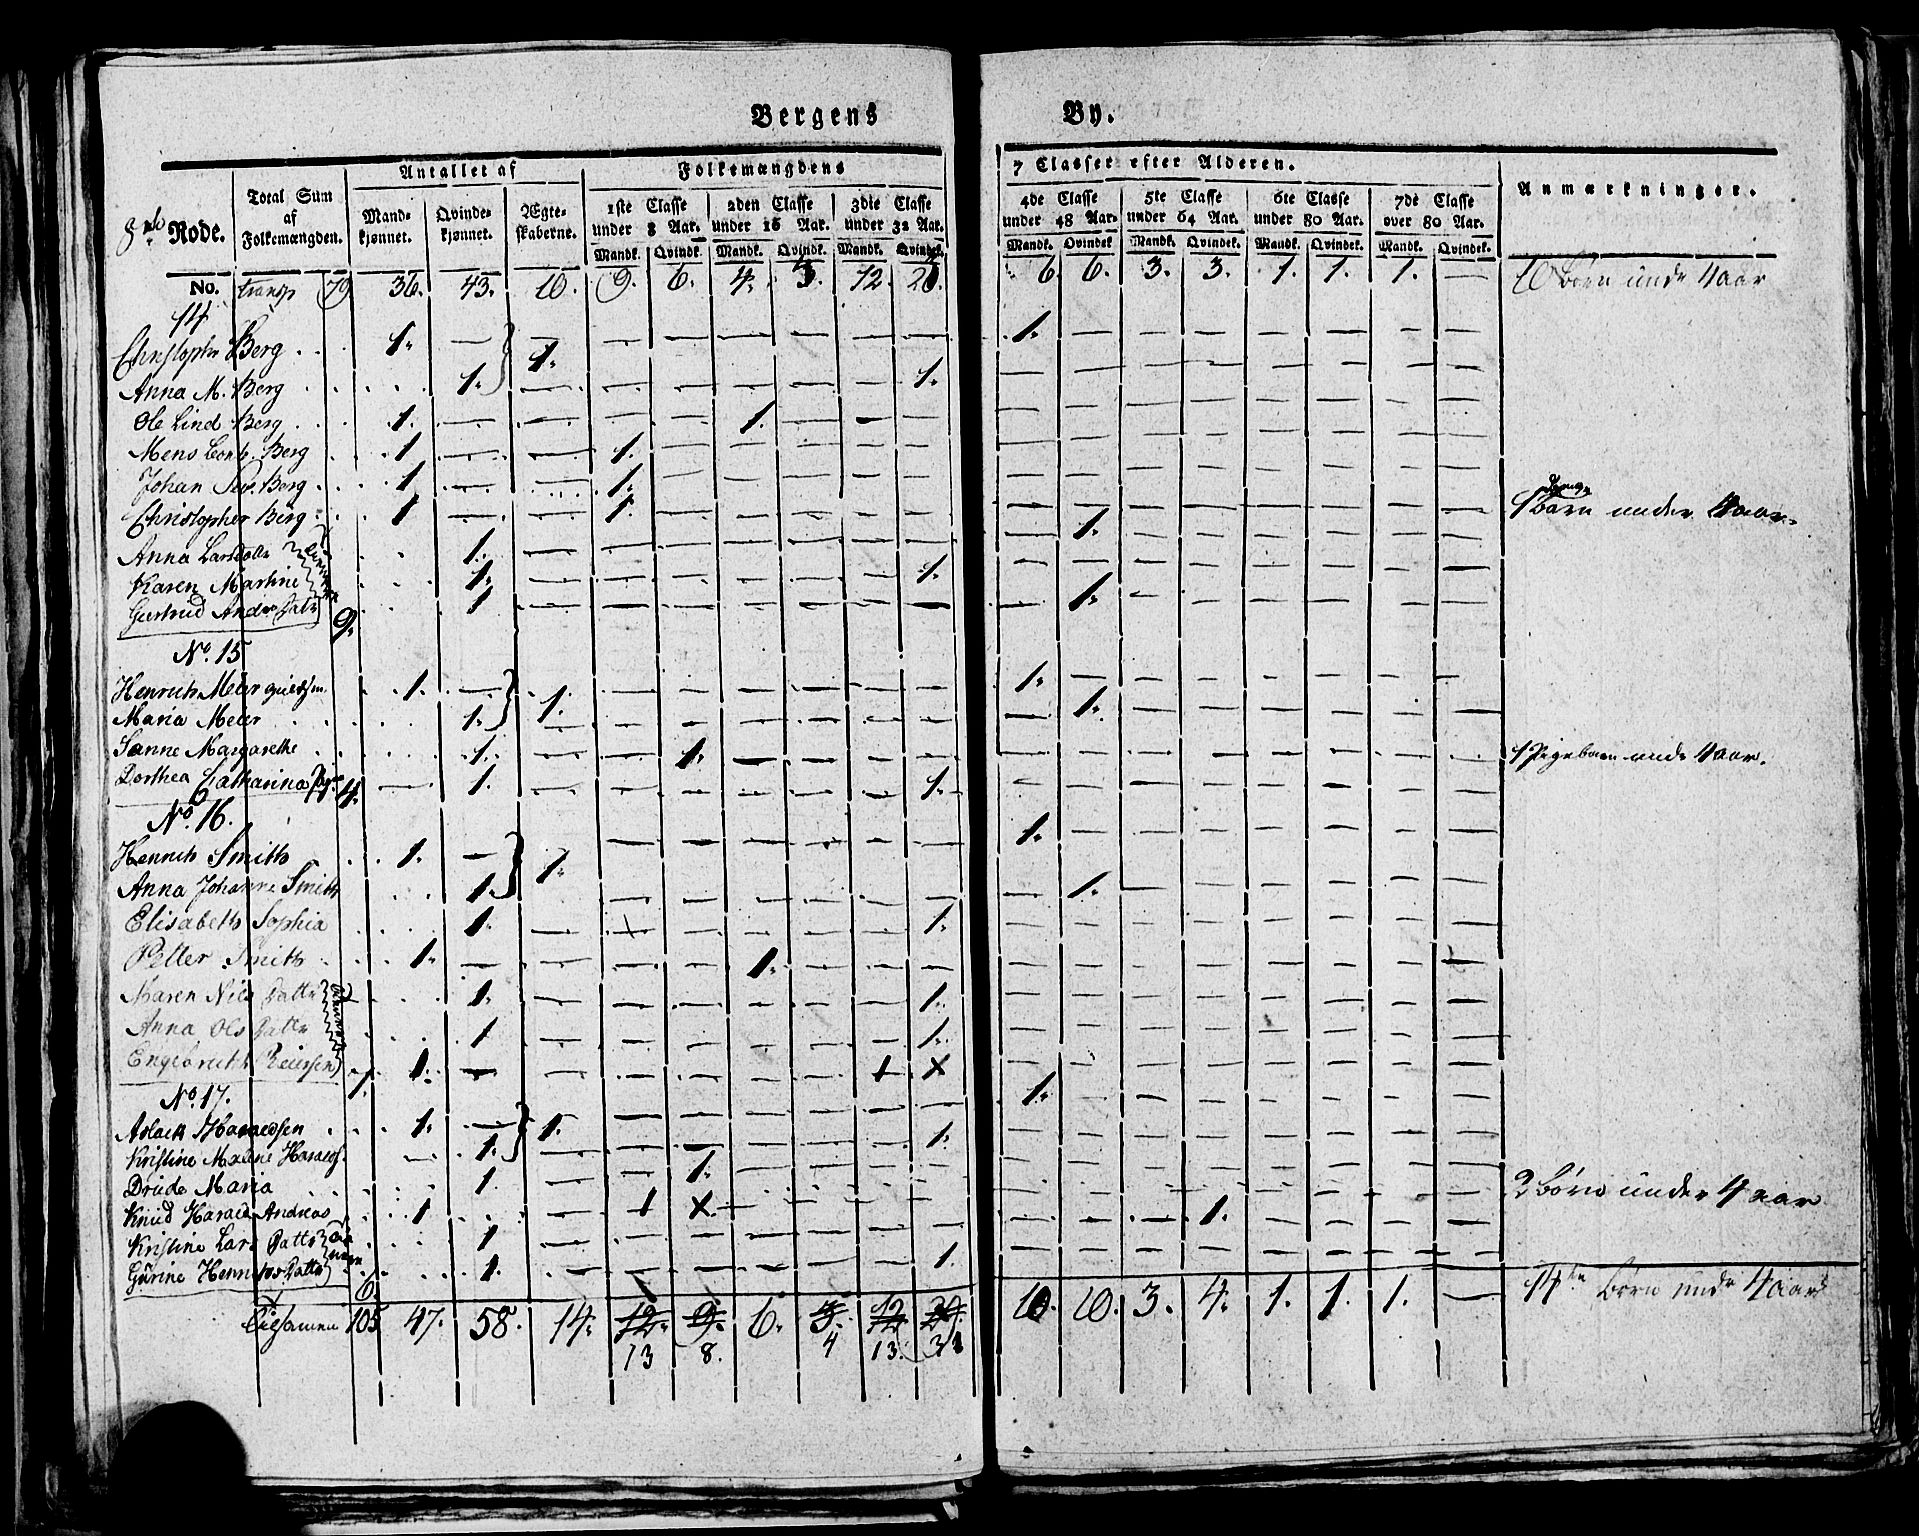 Bergens By.
Rode. Total Sum af Folkemængden. Antallet af Folkemængdens 7 Classer efter Alderen. Anmærkninger.
Mandkjønnet. Qvindekjønnet. Ægteskaberne. 1ste Classe under 8 Aar. 2den Classe under 16 Aar. 3die Classe under 32 Aar. 4de Classe under 48 Aar. 5te Classe under 64 Aar. 6te Classe under 80 Aar. 7de Classe over 80 Aar.
Mandk. Qvindk. Mandk. Qvindk. Mandk. Qvindek. Mandk. Qvindek Mandk. Qvindek. Mandk. Qvindek. Mandk. Qvindek.
No. transp 79 36. 43. 10. 9. 6. 4. 12. 6. 6. 3. 3. 1. 1. 1. — 10 Børn unde 4 aar
14
Christopher Berg 1. — 1. — — — — — — 1. — — — — — — —
Anna M. Berg 1. — — — — — — 1. — — — — — — — —
Ole Lind Berg 1. — — — — 1. — — — — — — — — — — —
Mens Berg 1 — — 1. — — — — — — — — — — — — —
Johan Berg 1 — 1. — — — — — — — — — — — — —
Christopher Berg 1 — — 1. — — — — — — — — — — — — — Børn under 4 aar
Anna Larsdatter 1. — — — — — — — — 1. — — — — — —
Karen Martine 1. — — — — — — 1. — — — — — — — —
Gertrud Andr Datr 9. 1 — — — — — — — — 1. — — — — — —
No. 15
Henrich Meier 1. — 1. — — — — — — 1. — — — — — — —
Maria Meier 1. — — — — — — — 1. — — — — — —
Sanne Margarethe 1. — — 1. — — — — — — — — — — — — 1 Pigebarn unde 4 aar.
Dorthea Catharina 4. — 1. — — — — — — 1. — — — — — — — —
No. 16.
Henrich Smith 1. — 1. — — — — — — 1. — — — — — — —
Anna Johanne Smith 1. — — — — — — — 1. — — — — — —
Elisabeth Sophia 1. — — — — — 1. — — — — — — — —
Petter Smith 1. — — — — 1. — — — — — — — — — — —
Maren Nils Dattr 1. — — — — — — 1. — — — — — — — —
Anna Ols Dattr 1 — — — — — — 1. — — — — — — — —
Engebrecht 7. 1. — — — — — — — — — — — — —
No. 17.
Aslack Haraldsen 1. — 1. — — — — — — 1. — — — — — — —
Kristine Malene Haralds. — 1. — — — — — — 1. — — — — — — — —
Drude Maria 1. — — 1. — — — — — — — — — — — —
Knud Harald Andreas 1 — — — — — — — — — — — — — 2 Børn under 4 aar
Kristine Lars Dattr 1 — — — — — — — — — — — 1. — — — —
Gurine Henrichs Dattr 6 1. — — — — — — 1. — — — — — — — —
Tilsamen 105 47. 58. 14. 12. 9. 6. 3. 12 10. 10. 3. 4. 1. 1. 1. — 14 Børn unde 4 aar
13 8. 4 13.